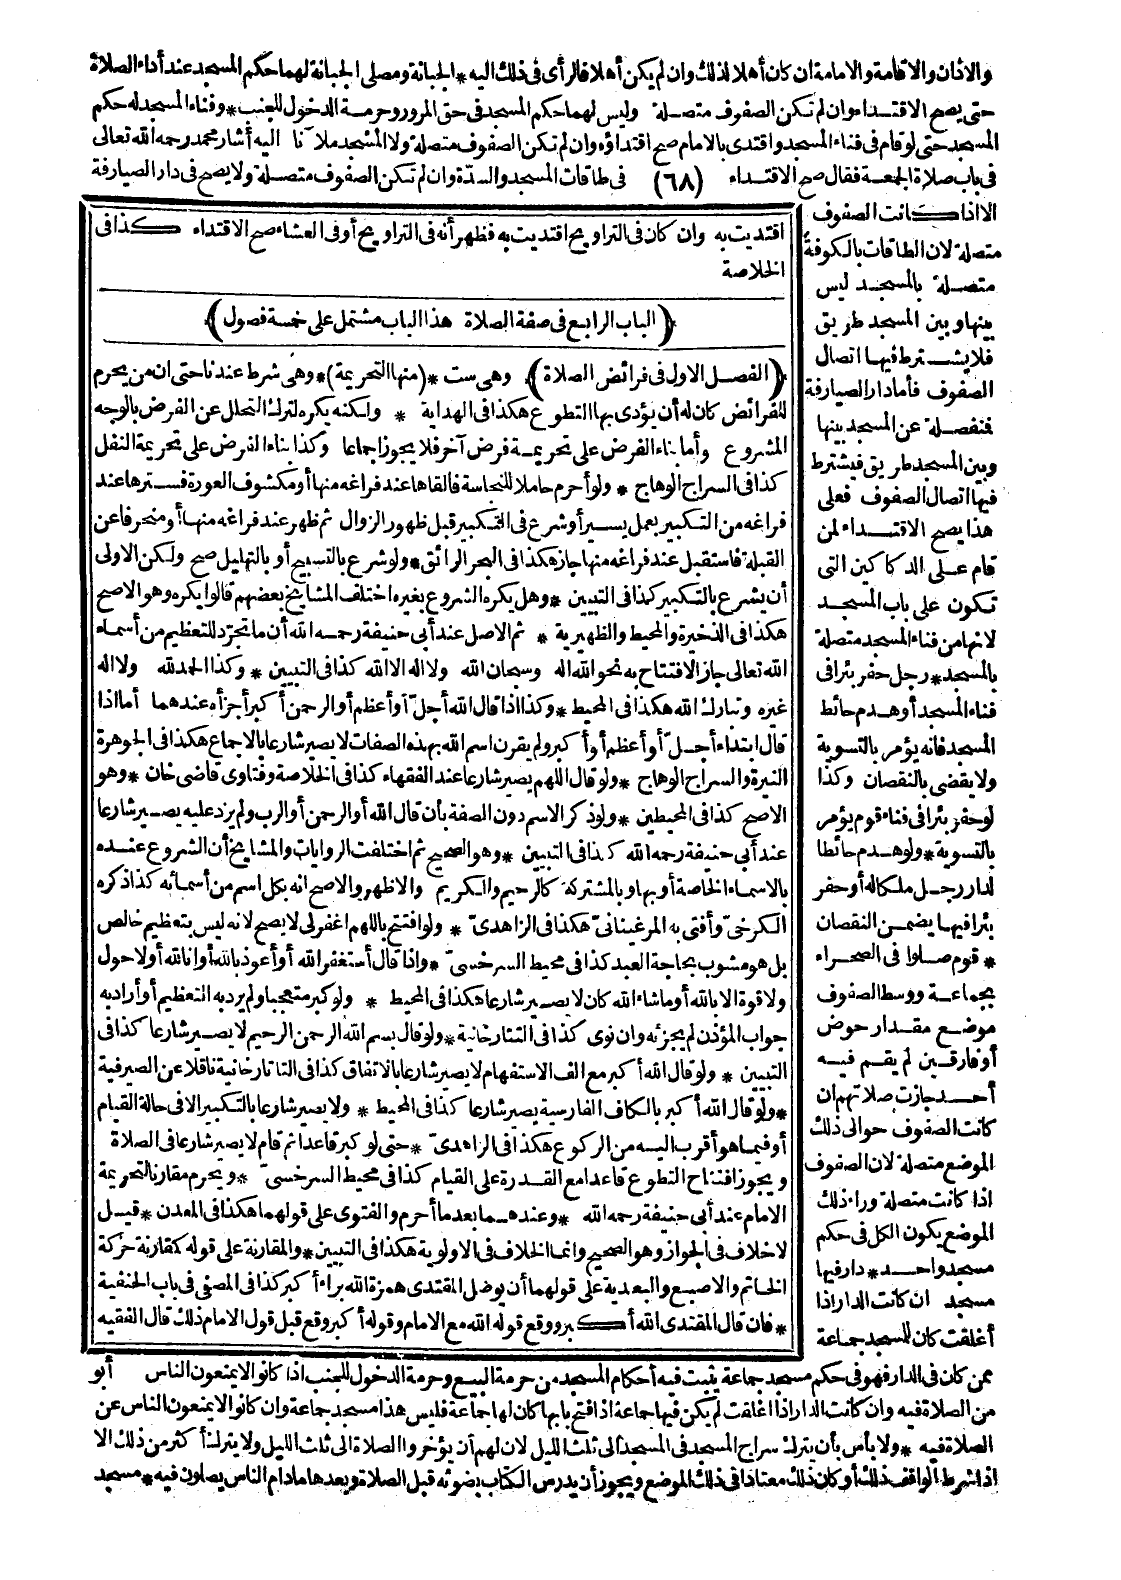 والاذان والاقامة والامامة ان كان أهلا لذلك وان لم يكن أهلا فالرأى فى ذلك اليه * الجبانة ومصلى الجبانة لهما حكم المسجد عند أداء الصلاة
حتى يصح الاقتداء وان لم تكن الصفوف متصلة وليس لهما حكم المسجد فى حق المرور وحرمة الدخول للجنب * وفناء المسجد له حكم
المسجد حتى لو قام فى فناء المسجد واقتدى بالامام صح اقتداؤه وان لم تكن الصفوف متصلة ولا المسجد ملآنا اليه أشار محمد رحمه الله تعالى
فى باب صلاة الجمعة فقال صح الاقتداء (٦٨) فى طاقات المسجد والسدّة وان لم تكن الصفوف متصلة ولا يصح فى دار الصيارفة
الا اذا كانت الصفوف
متصلة لان الطاقات بالكوفة
متصلة بالمسجد ليس
بينها وبين المسجد طريق
فلا يشترط فيها اتصال
الصفوف فأما دار الصيارفة
فمنفصلة عن المسجد بينها
وبين المسجد طريق فيشترط
فيها اتصال الصفوف فعلى
هذا يصح الاقتداء لمن
قام على الدكاكين التى
تكون على باب المسجد
لانها من فناء المسجد متصلة
بالمسجد * رجل حفر بئرا فى
فناء المسجد أو هدم حائط
المسجد فانه يؤمر بالتسوية
ولا يقضى بالنقصان وكذا
لو حفر بئرا فى فناء قوم يؤمر
بالتسوية * ولو هدم حائطا
لدار رجل ملكا له أو حفر
بئرا فيها يضمن النقصان
* قوم صلوا فى الصحراء
بجماعة ووسط الصفوف
موضع مقدار حوض
أو فارقين لم يقم فيه
أحد جازت صلاتهم ان
كانت الصفوف حوالى ذلك
الموضع متصلة لان الصفوف
اذا كانت متصلة وراء ذلك
الموضع يكون الكل فى حكم
مسجد واحد * دار فيها
مسجد ان كانت الدار اذا
أغلقت كان للمسجد جماعة
ممن كان فى الدار فهو فى حكم مسجد جماعة يثبت فيه أحكام المسجد من حرمة البيع وحرمة الدخول للجنب اذا كانوا لا يمنعون الناس
من الصلاة فيه وان كانت الدار اذا اغلقت لم يكن فيها جماعة اذا فتح بابها كان لها جماعة فليس هذا مسجد جماعة وان كانوا لا يمنعون الناس عن
الصلاة فيه * ولا بأس بأن يترك سراج المسجد فى المسجد الى ثلث الليل لان لهم أن يؤخروا الصلاة الى ثلث الليل ولا يترك أكثر من ذلك الا
اذا شرط الواقف ذلك أو كان ذلك معتادا فى ذلك الموضع ويجوز أن يدرس الكتاب بضوئه قبل الصلاة وبعدها ما دام الناس يصلون فيه * مسجد
اقتديت به وان كان فى التراويح اقتديت به فظهر أنه فى التراويح أو فى العشاء صح الاقتداء كذا فى
الخلاصة
﴿الباب الرابع فى صفة الصلاة هذا الباب مشتمل على خمسة فصول﴾
﴿الفصل الاول فى فرائض الصلاة﴾ وهى ست * (منها التحريمة) * وهى شرط عندنا حتى ان من يحرم
للفرائض كان له أن يؤدى بها التطوع هكذا فى الهداية * ولكنه يكره لترك التحلل عن الفرض بالوجه
المشروع وأما بناء الفرض على تحريمة فرض آخر فلا يجوز اجماعا وكذا بناء الفرض على تحريمة النفل
كذا فى السراج الوهاج * ولو أحرم حاملا للنجاسة فألقاها عند فراغه منها أو مكشوف العورة فسترها عند
فراغه من التكبير بعمل يسير أو شرع فى التكبير قبل ظهور الزوال ثم ظهر عند فراغه منها أو منحرفا عن
القبلة فاستقبل عند فراغه منها جاز هكذا فى البحر الرائق * ولو شرع بالتسبيح أو بالتهليل صح ولكن الاولى
أن يشرع بالتكبير كذا فى التبيين * وهل يكره الشروع بغيره اختلف المشايخ بعضهم قالوا يكره وهو الاصح
هكذا فى الذخيرة والمحيط والظهيرية * ثم الاصل عند أبى حنيفة رحمه الله أن ما تجرّد للتعظيم من أسماء
الله تعالى جاز الافتتاح به نحو الله اله وسبحان الله ولا اله الا الله كذا فى التبيين * وكذا الحمد لله ولا اله
غيره وتبارك الله هكذا فى المحيط * وكذا اذا قال الله أجلّ أو أعظم أو الرحمن أكبر أجزأه عندهما أما اذا
قال ابتداء أجلّ أو أعظم أو أكبر ولم يقرن اسم الله بهذه الصفات لا يصير شارعا بالاجماع هكذا فى الجوهرة
النيرة والسراج الوهاج * ولو قال اللهم يصير شارعا عند الفقهاء كذا فى الخلاصة وفتاوى قاضى خان * وهو
الاصح كذا فى المحيطين * ولو ذكر الاسم دون الصفة بأن قال الله أو الرحمن أو الرب ولم يزد عليه يصير شارعا
عند أبى حنيفة رحمه الله كذا فى التبيين * وهو الصحيح ثم اختلفت الروايات والمشايخ أن الشروع عنده
بالاسماء الخاصة أو بها وبالمشتركة كالرحيم والكريم والاظهر والاصح انه بكل اسم من أسمائه كذا ذكره
الكرخىّ وأفتى به المرغينانىّ هكذا فى الزاهدىّ * ولو افتتح باللهم اغفر لى لا يصح لانه ليس بتعظيم خالص
بل هو مشوب بحاجة العبد كذا فى محيط السرخسىّ * واذا قال أستغفر الله أو أعوذ بالله أو انا لله أو لا حول
ولا قوة الا بالله أو ما شاء الله كان لا يصير شارعا هكذا فى المحيط * ولو كبر متعجبا ولم يرد به التعظيم أو أراد به
جواب المؤذن لم يجزئه وان نوى كذا فى التتارخانية * ولو قال بسم الله الرحمن الرحيم لا يصير شارعا كذا فى
التبيين * ولو قال الله أكبر مع الف الاستفهام لا يصير شارعا بالاتفاق كذا فى التاتارخانية ناقلا عن الصيرفية
* ولو قال الله أكبر بالكاف الفارسية يصير شارعا كذا فى المحيط * ولا يصير شارعا بالتكبير الا فى حالة القيام
أو فيما هو أقرب اليه من الركوع هكذا فى الزاهدىّ * حتى لو كبر قاعدا ثم قام لا يصير شارعا فى الصلاة
ويجوز افتتاح التطوع قاعدا مع القدرة على القيام كذا فى محيط السرخسىّ * ويحرم مقارنا لتحريمة
الامام عند أبى حنيفة رحمه الله * وعندهما بعد ما أحرم والفتوى على قولهما هكذا فى المعدن * قيل
لا خلاف فى الجواز وهو الصحيح وانما الخلاف فى الاولوية هكذا فى التبيين * والمقارنة على قوله كمقارنة حركة
الخاتم والاصبع والبعدية على قولهما أن يوصل المقتدى همزة الله براء أكبر كذا فى المصفى فى باب الحنفية
* فان قال المقتدى الله أكبر ووقع قوله الله مع الامام وقوله أكبر وقع قبل قول الامام ذلك قال الفقيه
أبو